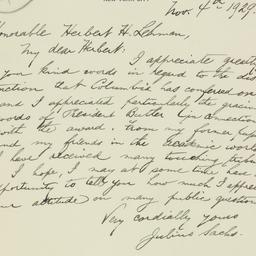 NEW YORK CITY
Nov. 4th 1929
Honorable Herbert H. Lehman,
My dear Herbert:
I appreciate greatly
your kind words in regard to the dis
tinction that Columbia has conferred on
and I appreciated particularly the gracious
words of President Butler in connection
with the award. From my former pupils
and my friends in the academic world
I have received many touching
I hope, I may at some time have
opportunity to tell you how much I appreciate
your attitude on many public questions
Very cordially yours
Julius Sachs.